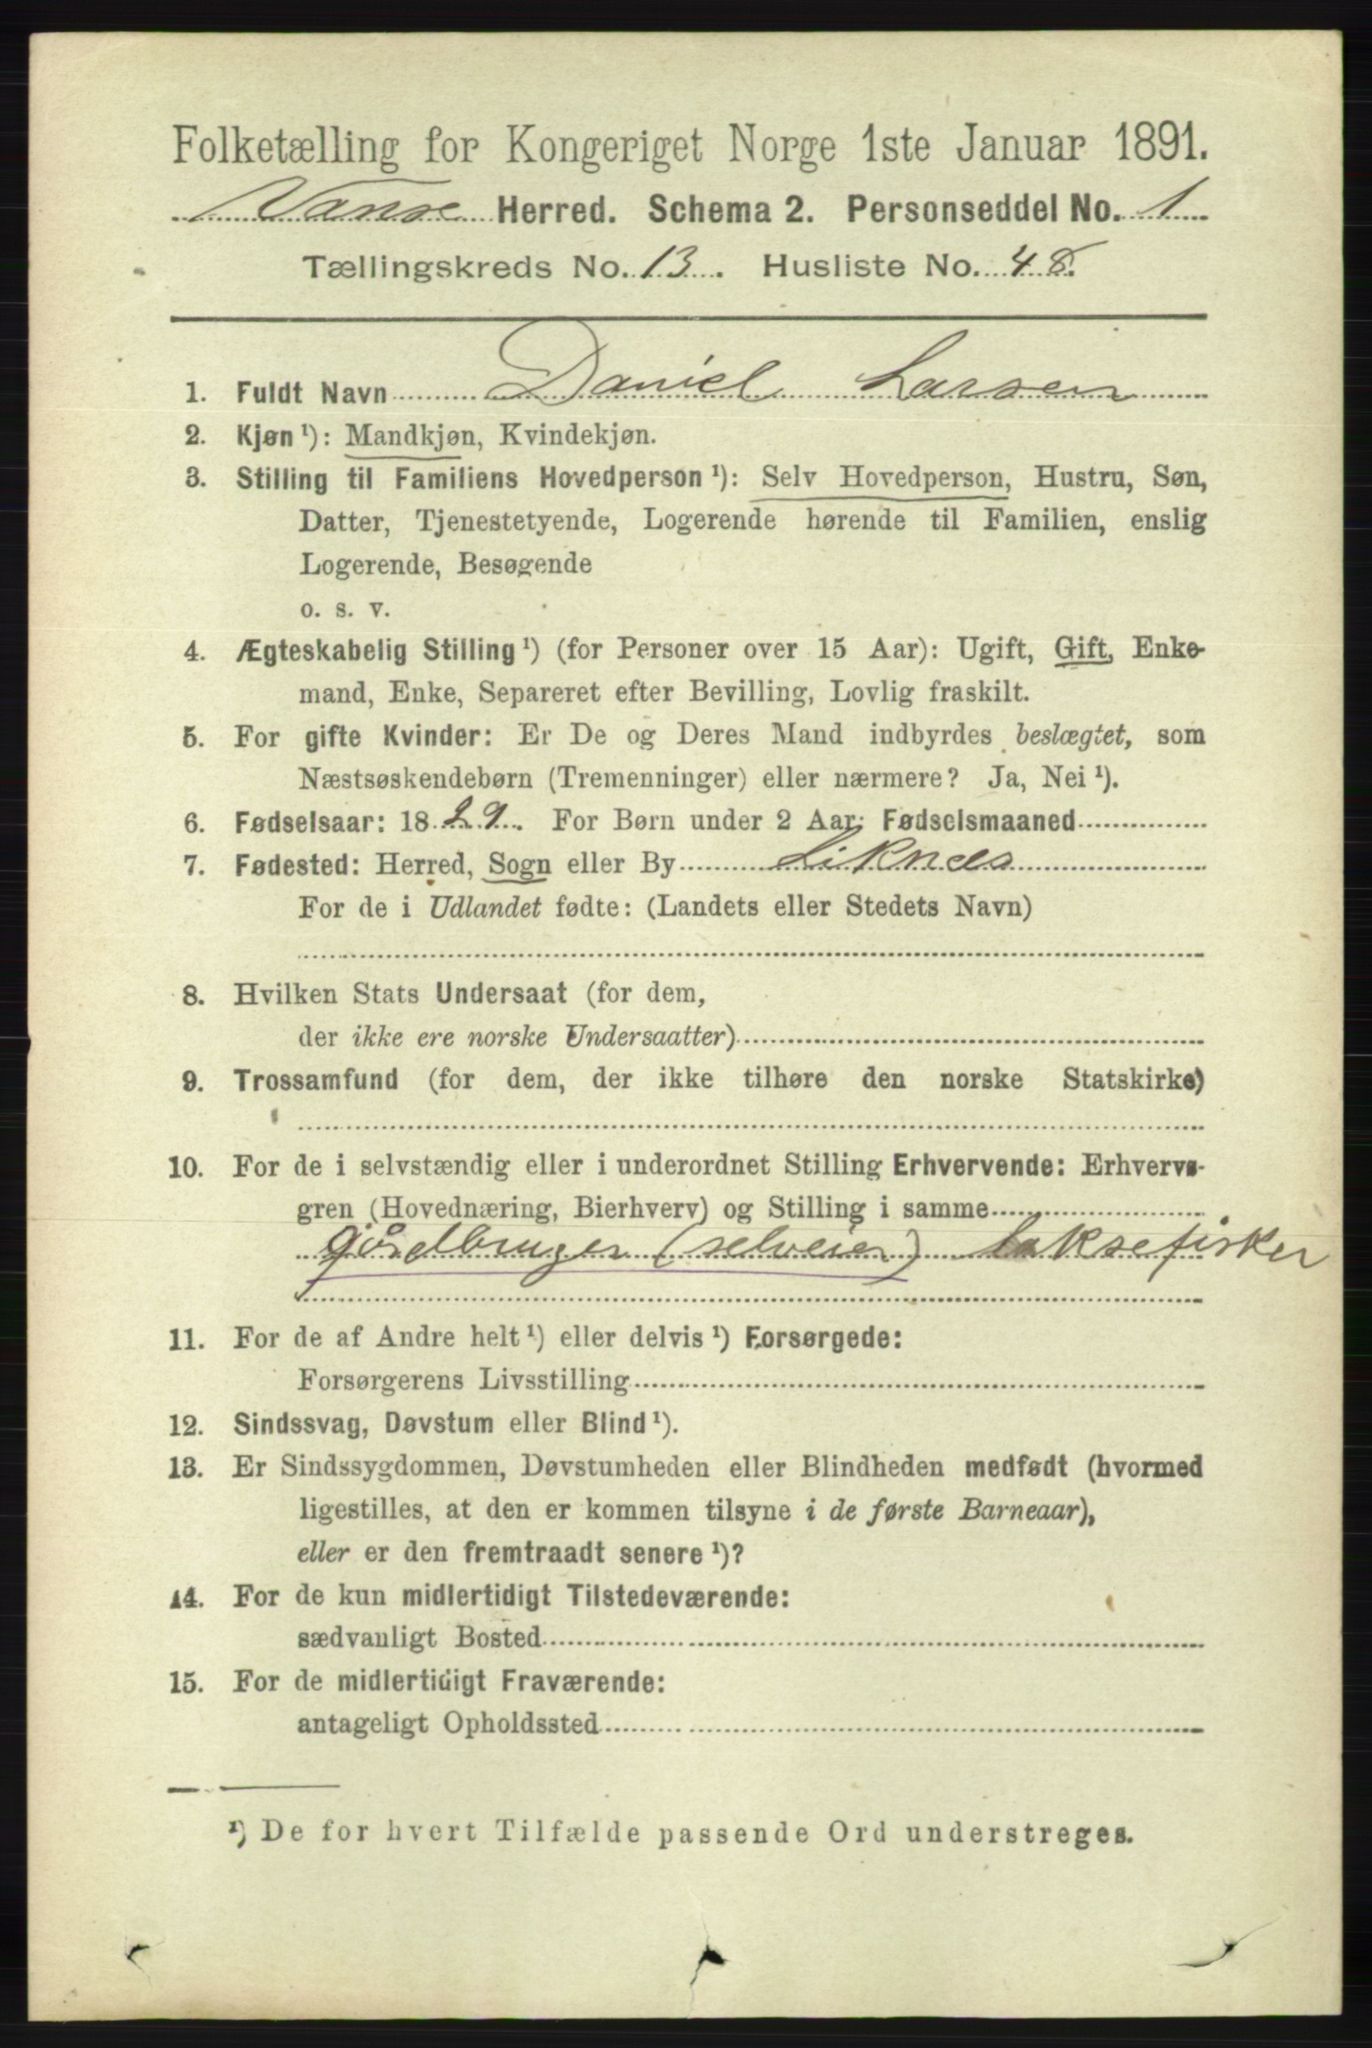 Folketælling for Kongeriget Norge 1ste Januar 1891.
Vanse Herred. Schema 2. Personseddel No. 1
Tællingskreds No. 13. Husliste No. 48.
1. Fuldt Navn Daniel Larsen
2. Kjøn ¹): Mandkjøn, Kvindekjøn.
3. Stilling til Familiens Hovedperson ¹): Selv Hovedperson, Hustru, Søn,
Datter, Tjenestetyende, Logerende hørende til Familien, enslig
Logerende, Besøgende
o. s. v.
4. Ægteskabelig Stilling ¹) (for Personer over 15 Aar): Ugift, Gift, Enke-
mand, Enke, Separeret efter Bevilling, Lovlig fraskilt.
5. For gifte Kvinder: Er De og Deres Mand indbyrdes beslægtet, som
Næstsøskendebørn (Tremenninger) eller nærmere? Ja, Nei ¹).
6. Fødselsaar: 1829. For Børn under 2 Aar: Fødselsmaaned
7. Fødested: Herred, Sogn eller By Liknes
For de i Udlandet fødte: (Landets eller Stedets Navn)
8. Hvilken Stats Undersaat (for dem,
der ikke ere norske Undersaatter)
9. Trossamfund (for dem, der ikke tilhøre den norske Statskirke)
10. For de i selvstændig eller i underordnet Stilling Erhvervende: Erhvervs-
gren (Hovednæring, Bierhverv) og Stilling i samme
gårdbruger (selveier) laksefisker
11. For de af Andre helt ¹) eller delvis ¹) Forsørgede:
Forsørgerens Livsstilling
12. Sindssvag, Døvstum eller Blind ¹).
13. Er Sindssygdommen, Døvstumheden eller Blindheden medfødt (hvormed
ligestilles, at den er kommen tilsyne i de første Barneaar),
eller er den fremtraadt senere ¹)?
14. For de kun midlertidigt Tilstedeværende:
sædvanligt Bosted
15. For de midlertidigt Fraværende:
antageligt Opholdssted
¹) De for hvert Tilfælde passende Ord understreges.